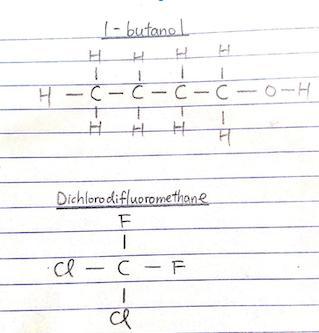 1-butanol
H H H H
| | | |
H — C — C — C — C — O — H
| | | |
H H H H
Dichlorodifluoromethane
F
|
Cl — C — F
|
Cl